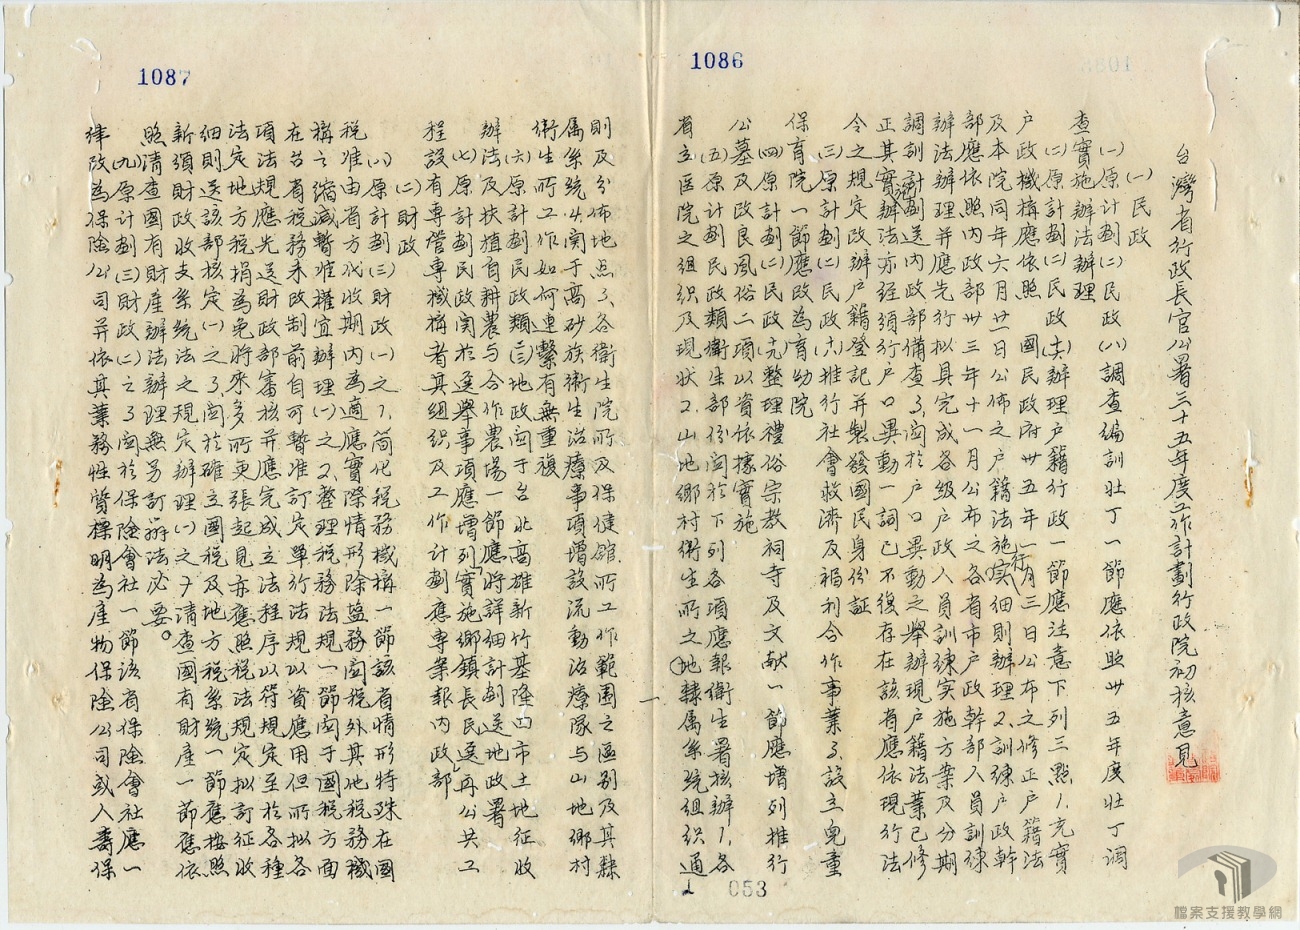 1086
台灣省行政長官公署三十五年度工作計劃行政院初核意見
(一)民政
(一)原計劃(二)民政(八)調查編訓壯丁一節應依照卅五年度壯丁調
查實施辦法辦理
(二)原計劃(二)民政(六)辦理戶籍行政一節應注意下列三點1.充實
戶政機構應依照國民政府卅五年一月三日公布之修正戶籍法
及本院同年六月廿一日公佈之戶籍法施行細則辦理2.訓練戶政幹
部應依照內政部卅三年十一月公布之各省市戶政幹部人員訓練
辦法辦理并應先行擬具完成各級戶政人員訓練实施方案及分期
調訓計劃送內政部備查3.関於戶口異動之舉辦現戶籍法業已修
正其實辦法亦經須行戶口異動一詞已不復存在該省應依現行法
令之規定改辦戶籍登記并製發國民身份証
(三)原計劃(二)民政(六)推行社會救濟及福利合作事業3.設立兒童
保育院一節應改為育幼院
(四)原計劃(二)民政(九)整理禮俗宗教祠寺及文献一節應增列推行
公墓及改良風俗二項以資依據實施
(五)原計劃民政類衛生部份関於下列各項應報衛生署核辦1.各
省立医院之組织及現狀2.山地鄉村衛生所之地隸属系統組織通
053
1087
則及分佈地点3.各衛生院所及保健館所工作範圍之區别及其隸
属系統4.関于高砂族衛生治療事項增設流動治療隊与山地鄉村
衛生所工作如何連繫有無重複
(六)原計劃民政類(三)地政関于台北高雄新竹基隆四市土地征收
辦法及扶植自耕農与合作農場一節應將詳細計劃送地政署
(七)原計劃民政関於選舉事項應增列實施鄉鎮長民選再公共工
程設有專營專械構者其組织及工作計劃應專案報內政部
(二)財政
(八)原計劃(三)財政(一)之1.简化税務機構一節該省情形特殊在國
税准由省方代收期內為適應實際情形除盐務関税外其他税務機
構之縮減暫准權宜辦理(一)之2.整理税務法規一節関于國税方面
在台省税務未改制前自可暫准訂定單行法規以資應用但所拟各
項法規應先送財政部審核并應完成立法程序以符規定至於各種
法定地方税捐為免將來多所更張起見亦應照税法規定拟訂征收
細則送該部核定(一)之3.関於確立國税及地方税系統一節應按照
新須財政收支系統法之規定辦理(一)之7.清查國有財產一節應依
照清查國有財產辦法辦理無另訂辦法必要。
(九)原計劃(三)財政(二)之3関於保險會社一節該省保險會社應一
律改為保險公司并依其業務性質標明為產物保險公司或人壽保
檔案支援教學網